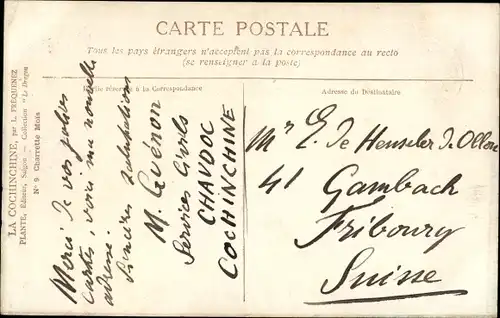 CARTE POSTALE
Tous les pays étrangers n'acceptent pas la correspondance au recto
(se renseigner à la poste)
LA COCHINCHINE, par L. FRÉQUENEZ
PLANTÉ, Éditeur, Saigon — Collection "Le Dragon
Nº 9 Charrette Moïs
Partie réservée à la Correspondance
Merci de vos jolies
cartes, voici ma nouvelle
adresse.
Sincères salutations
M. Guénon
Services Civils
CHAUDOC
COCHINCHINE
Adresse du Destinataire
Mr E. de Henseler d.
41 Gambach
Fribourg
Suisse